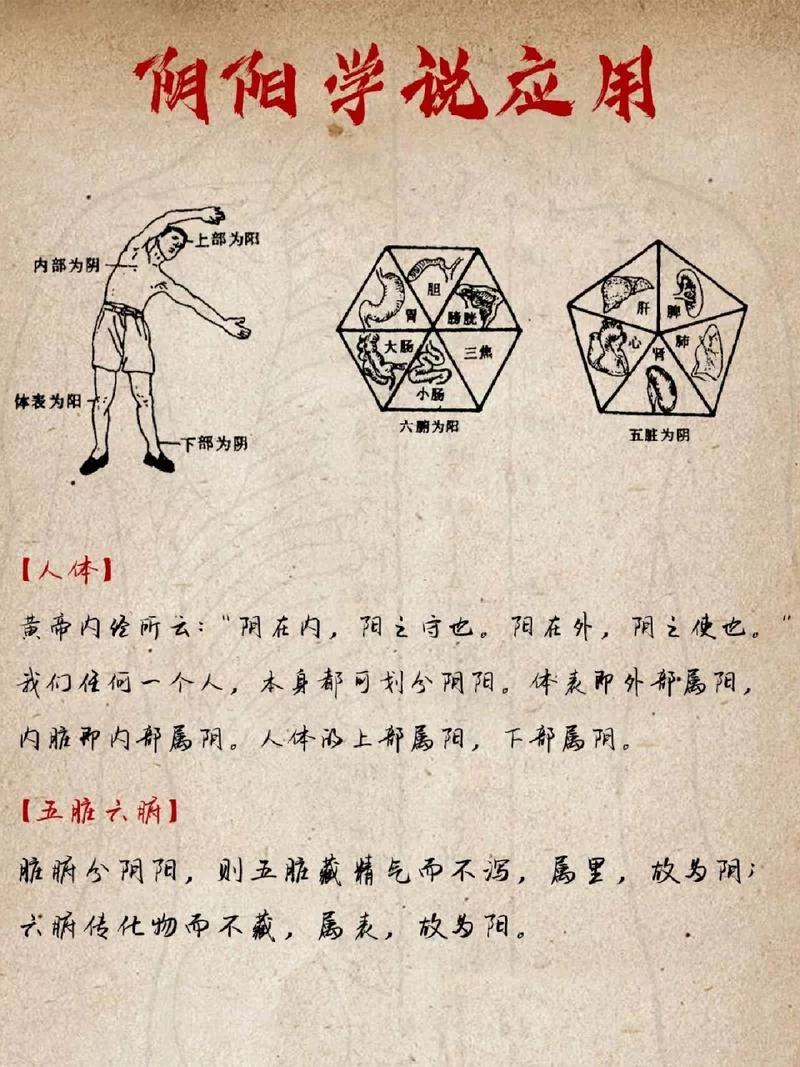 阴阳学说应用
上部为阳
内部为阴
体表为阳
下部为阴
胆
胃
膀胱
大肠
三焦
小肠
六腑为阳
肝
脾
心
肾
肺
五脏为阴
【人体】
黄帝内经所云：“阴在内，阳之守也。阳在外，阴之使也。”
我们任何一个人，本身都可划分阴阳。体表即外部属阳，
内脏即内部属阴。人体的上部属阳，下部属阴。
【五脏六腑】
脏腑分阴阳，则五脏藏精气而不泻，属里，故为阴；
六腑传化物而不藏，属表，故为阳。